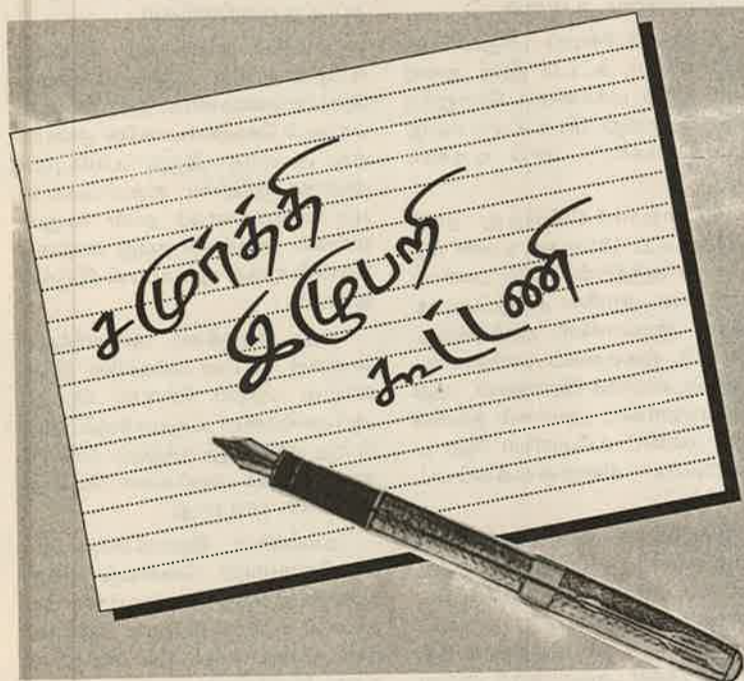 சமுர்த்தி
இழுபறி
கூட்டணி